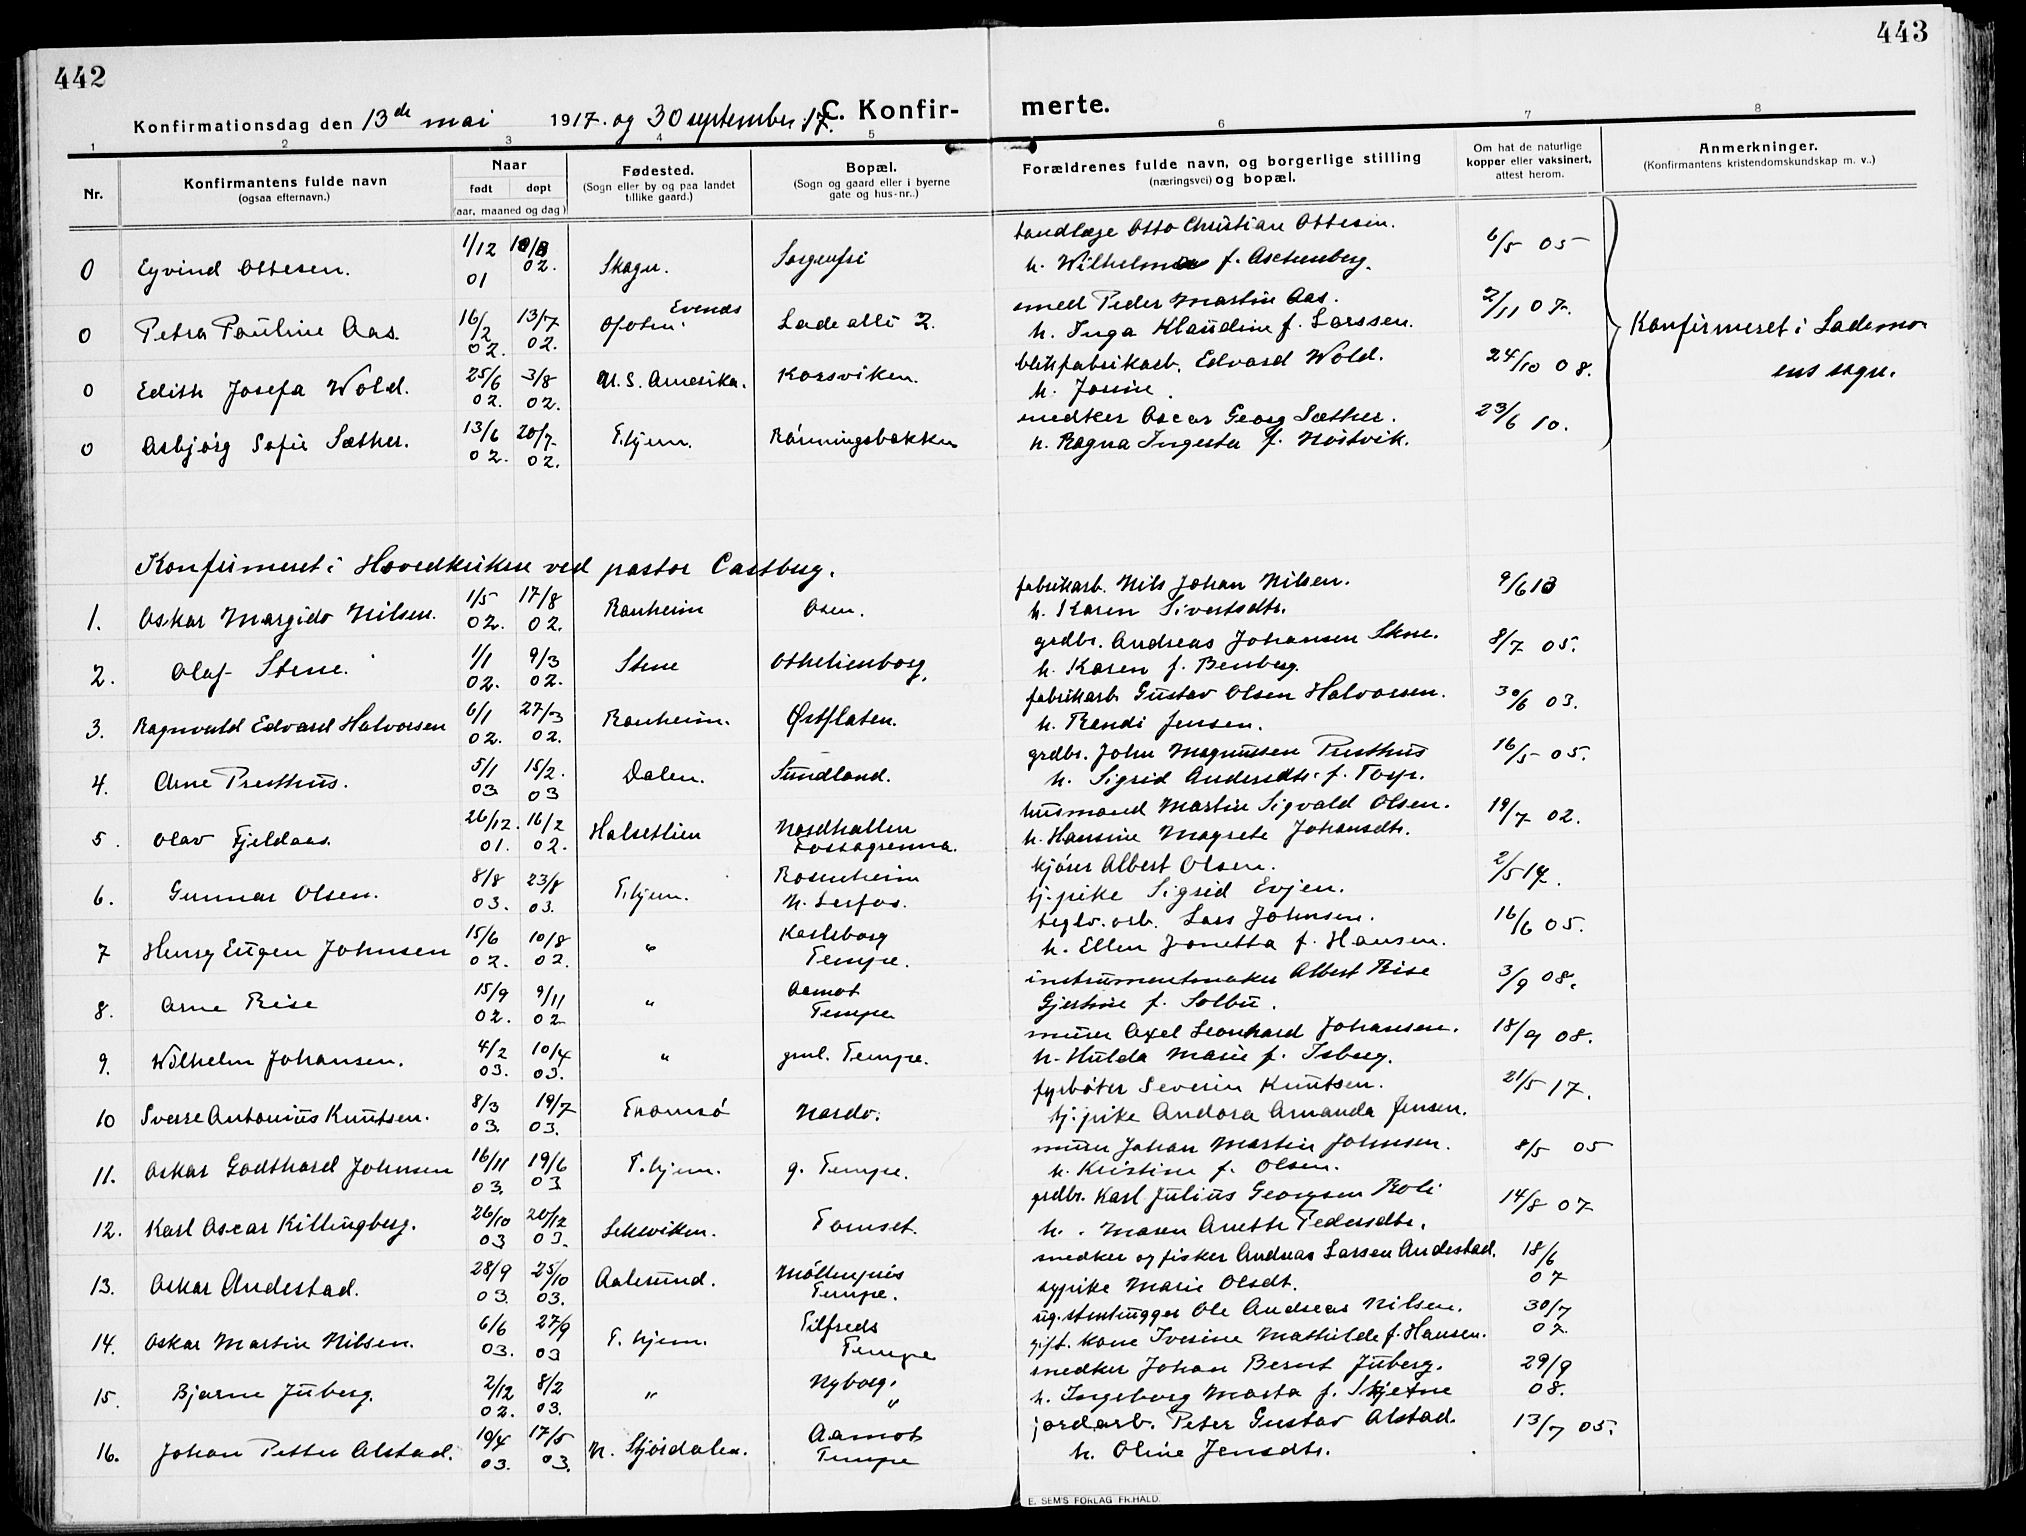 442
443
Konfirmationsdag den 13de mai 1917. og 30 september 17. C. Konfir- merte.
1 2 3 4 5 6 7 8
Nr. Konfirmantens fulde navn (ogsaa efternavn.) Naar født døpt (aar, maaned og dag) Fødested. (Sogn eller by og paa landet tillike gaard.) Bopæl. (Sogn og gaard eller i byerne gate og hus-nr..) Forældrenes fulde navn, og borgerlige stilling (næringsvei) og bopæl. Om hat de naturlige kopper eller vaksinert, attest herom. Anmerkninger. (Konfirmantens kristendomskundskap m. v..)
0 Eyvind Ottesen. 1/12 01 18/8 02. Skogn. Sorgenfri tandlæge Otto Christian Ottesen. h. Wilhelmine f. Aschenberg. 6/5 05
0 Petra Pauline Aas. 16/2 02. 13/7 02. Ofoten Evenæs Lade allé 2. smed Peder Martin Aas. h. Inga Klaudine f. Larssen. 2/11 07. Konfirmeret i Lademo-
0 Edith Josefa Wold. 25/6 02. 3/8 02. U. S. Amerika. Korsviken. blikfabrikarb. Edvard Wold. h. Josine. 24/10 08. ens sogn.
0 Asbjørg Sofie Sæther. 13/6 02. 20/7 02. T.hjem. Rønningsbakken snedker Oscar Georg Sæther. h. Ragna Ingerta f. Høstvik. 23/6 10.
Konfirmeret i Hovedkirken ved pastor Castberg.
1. Oskar Margido Nilsen. 1/5 02. 17/8 02. Ranheim Osen. fabrikarb. Nils Johan Nilsen. h. Karen Sivertsdtr. 9/6 13
2. Olaf Stene. 1/1 02. 9/3 02. Stene Othelienborg. grdbr. Andreas Johansen Stene. h. Karen f. Benberg. 8/7 05.
3. Ragnvald Edvard Halvorsen 6/1 02. 27/3 02. Ranheim. Østflaten. fabrikarb. Gustav Olsen Halvorsen. h. Randi Jensen. 30/6 03.
4. Arne Presthus. 5/1 03 15/2. 03 Dalen. Sundland. grdbr. John Magnussen Presthus h. Sigrid Andersdtr. f. Torp. 16/5 05.
5. Olav Fjeldaas. 26/12. 01. 16/2 02. Halsetlien Nordhallen Fossagrenna. husmand Martin Sigvald Olsen. h. Hansine Magrete Johansdtr. 19/7 02.
6. Gunnar Olsen. 8/8 03. 23/8 03. T.hjem. Rosenheim N. Lerfos. kjører Albert Olsen. tj.pike Sigrid Evjen. 2/5 17.
7 Henry Eugen Johnsen 15/6 02. 10/8 02. " Karlsborg Tempe. teglv. arb. Lars Johnsen. h. Ellen Jonetta f. Hansen. 16/6 05.
8. Arne Rise 15/9 02. 9/11 02 " Aamot Tempe instrumentmaker Albert Rise Gjertine f. Solbu. 3/9 08.
9. Wilhelm Johansen. 4/2 03. 10/4 03. " gml. Tempe. murer Axel Leonhard Johansen. h. Hulda Marie f. Isberg. 18/9 08.
10 Sverre Antonius Knutsen. 8/3 03. 19/7 03. Tromsø Nardo. fyrbøter Severin Knutsen. tj.pike Andora Amanda Jensen. 21/5 17.
11. Oskar Godthard Johnsen 16/11 03. 19/6 03 T.hjem. g. Tempe. murer Johan Martin Johnsen. h. Kristine f. Olsen. 8/5 05
12. Karl Oscar Killingberg. 26/10 03 20/12 03. Leksviken. Tomset. grdbr. Karl Julius Georgsen Roli h. Maren Anette Pedersdtr. 14/8 07
13. Oskar Andestad. 28/9 03. 25/10 03. Aalesund. Møllenpris Tempe. snedker og fisker Andreas Larsen Andestad. sypike Marie Olsdt. 18/6 07
14. Oskar Martin Nilsen. 6/6 03. 27/9 03 T.hjem. Tilfreds Tempe ug. stenhugger Ole Andreas Nilsen. gift. kone Iverine Mathilde f. Hansen. 30/7 07.
15. Bjarne Juberg. 2/12 02. 8/2 03. " Nyborg. " snedker Johan Bernt Juberg. h. Ingeborg Marta f. Skjetne 29/9 08.
16. Johan Petter Alstad. 10/4 03. 17/5 03. N. Stjørdalen. Aamot Tempe jordarb. Peter Gustav Alstad. h. Oline Jensdtr. 13/7 05.
E. SEM'S FORLAG FR.HALD.